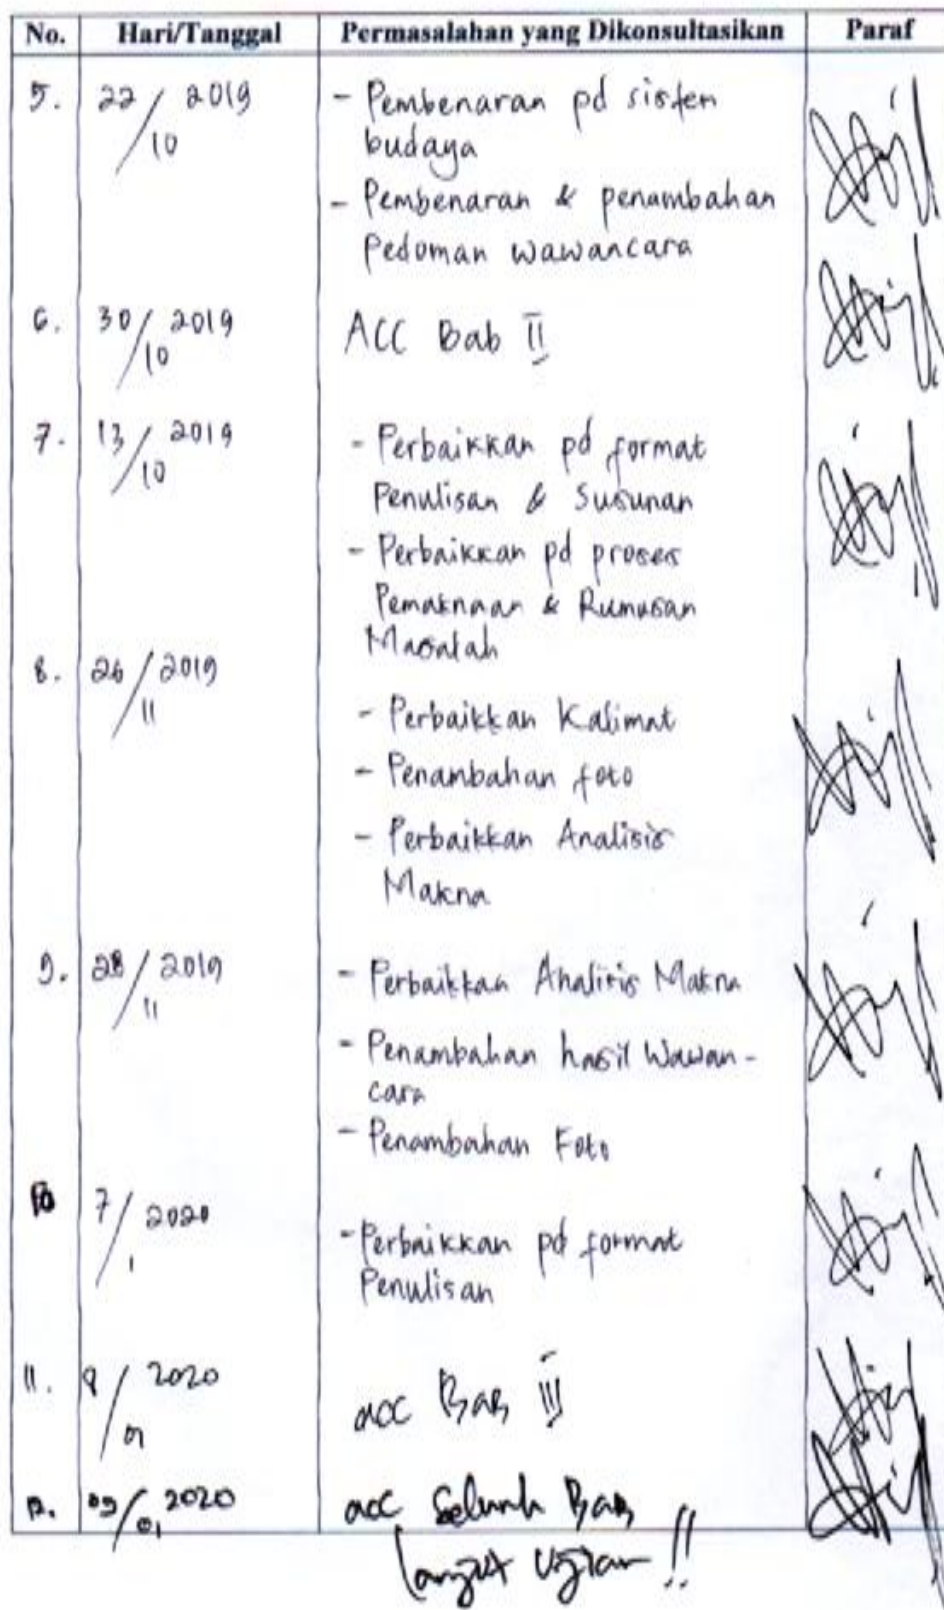 No. Hari/Tanggal Permasalahan yang Dikonsultasikan Paraf
5. 22/10 2019 - Pembenaran pd sistem
budaya
- Pembenaran & penambahan
Pedoman wawancara
6. 30/10 2019 ACC Bab II
7. 13/10 2019 - Perbaikkan pd format
Penulisan & Susunan
- Perbaikkan pd proses
Pemaknaan & Rumusan
Masalah
8. 26/11 2019
- Perbaikkan Kalimat
- Penambahan foto
- Perbaikkan Analisis
Makna
9. 28/11 2019 - Perbaikkan Analisis Makna
- Penambahan hasil Wawan-
cara
- Penambahan Foto
10 7/1 2020
- Perbaikkan pd format
Penulisan
11. 9/01 2020 acc Bab III
12. 09/01 2020 acc Seluruh Bab
lanjut Ujian !!